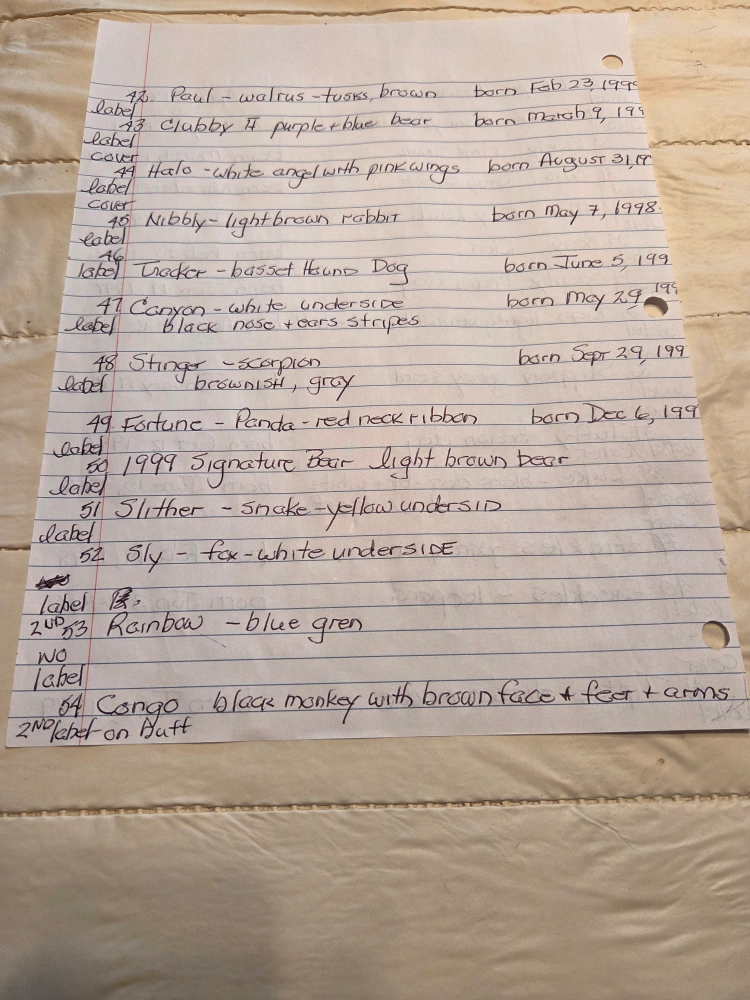 42. Paul - walrus - tusks, brown born Feb 23, 1999
label
43 Clubby II purple + blue bear born March 9, 199
label
cover
44 Halo - white angel with pink wings born August 31, 19
label
cover
45 Nibbly - light brown rabbit born May 7, 1998
label
46
label Tracker - basset Hound Dog born June 5, 199
47 Canyon - white underside born May 29, 199
label black nose + ears stripes
48 Stinger - scorpion born Sept 29, 199
label brownish, gray
49 Fortune - Panda - red neck ribbon born Dec 6, 199
label
50 1999 Signature Bear light brown bear
label
51 Slither - snake - yellow undersid
label
52 Sly - fox - white underside
label
2ND 53 Rainbow - blue gren
NO
label
54 Congo black monkey with brown face + feet + arms
2ND label on Butt